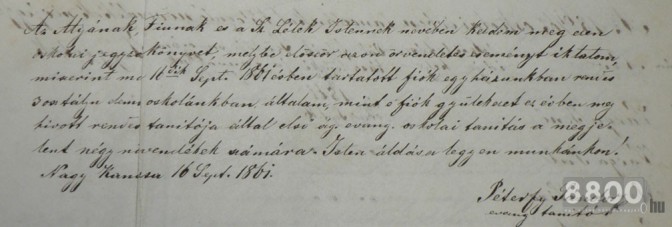 Az Atyának Fiunak és a Sz Lélek Istennek nevében kezdem meg ezen
oskolai jegyzőkönyvet, melybe először azon örvendetes eseményt iktatom,
miszerint ma 16ik Sept. 1861 évben tartatott fiók egyházunkban rendes
3 osztályu elemi oskolánkban általam, mint e fiók gyülekezet ez évben meg
hivott rendes tanitója által első ág. evang. oskolai tanitás a megje-
lent négy növendékek számára. Isten áldása legyen munkánkon!
Nagy Kanizsa 16 Sept. 1861.
Péterfy
evang tanitó
8800.hu